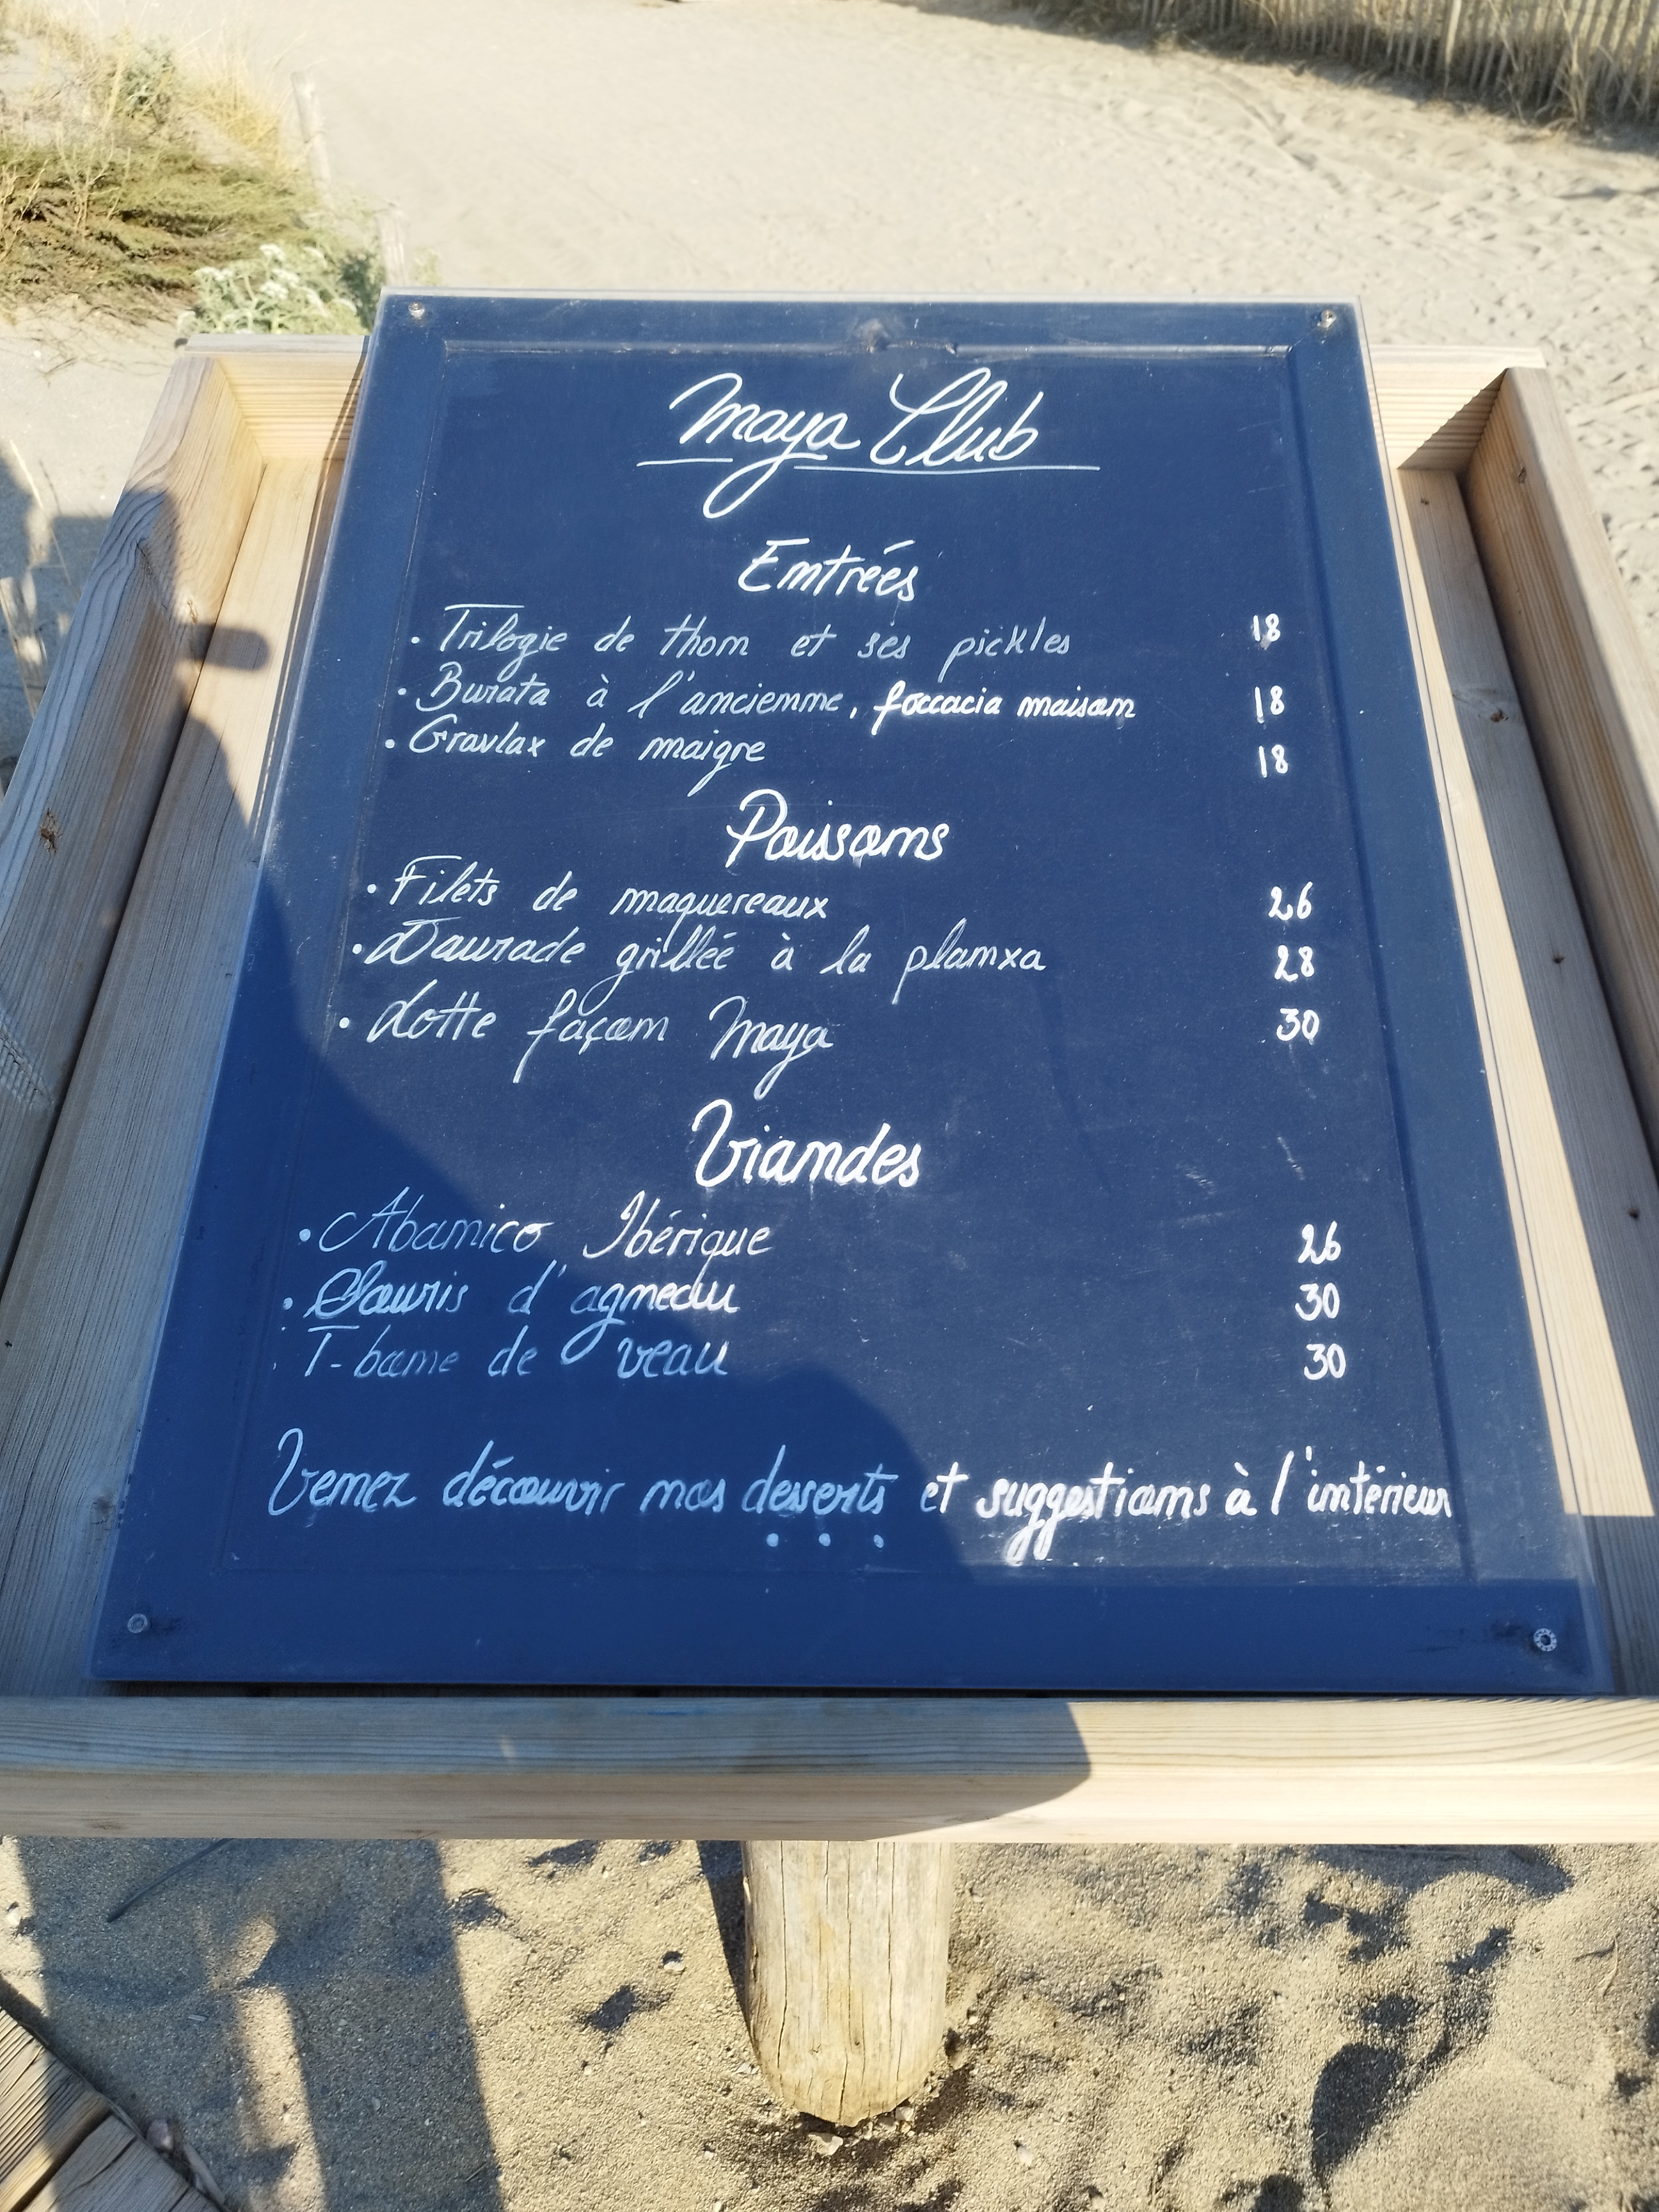 Maya Club
Entrées
• Trilogie de thon et ses pickles 18
• Burata à l'ancienne, foccacia maison 18
• Gravlax de maigre 18
Poissons
• Filets de maquereaux 26
• Daurade grillée à la planxa 28
• Lotte façon Maya 30
Viandes
• Abanico Ibérique 26
• Souris d'agneau 30
• T-bone de veau 30
Venez découvrir nos desserts et suggestions à l'intérieur
...